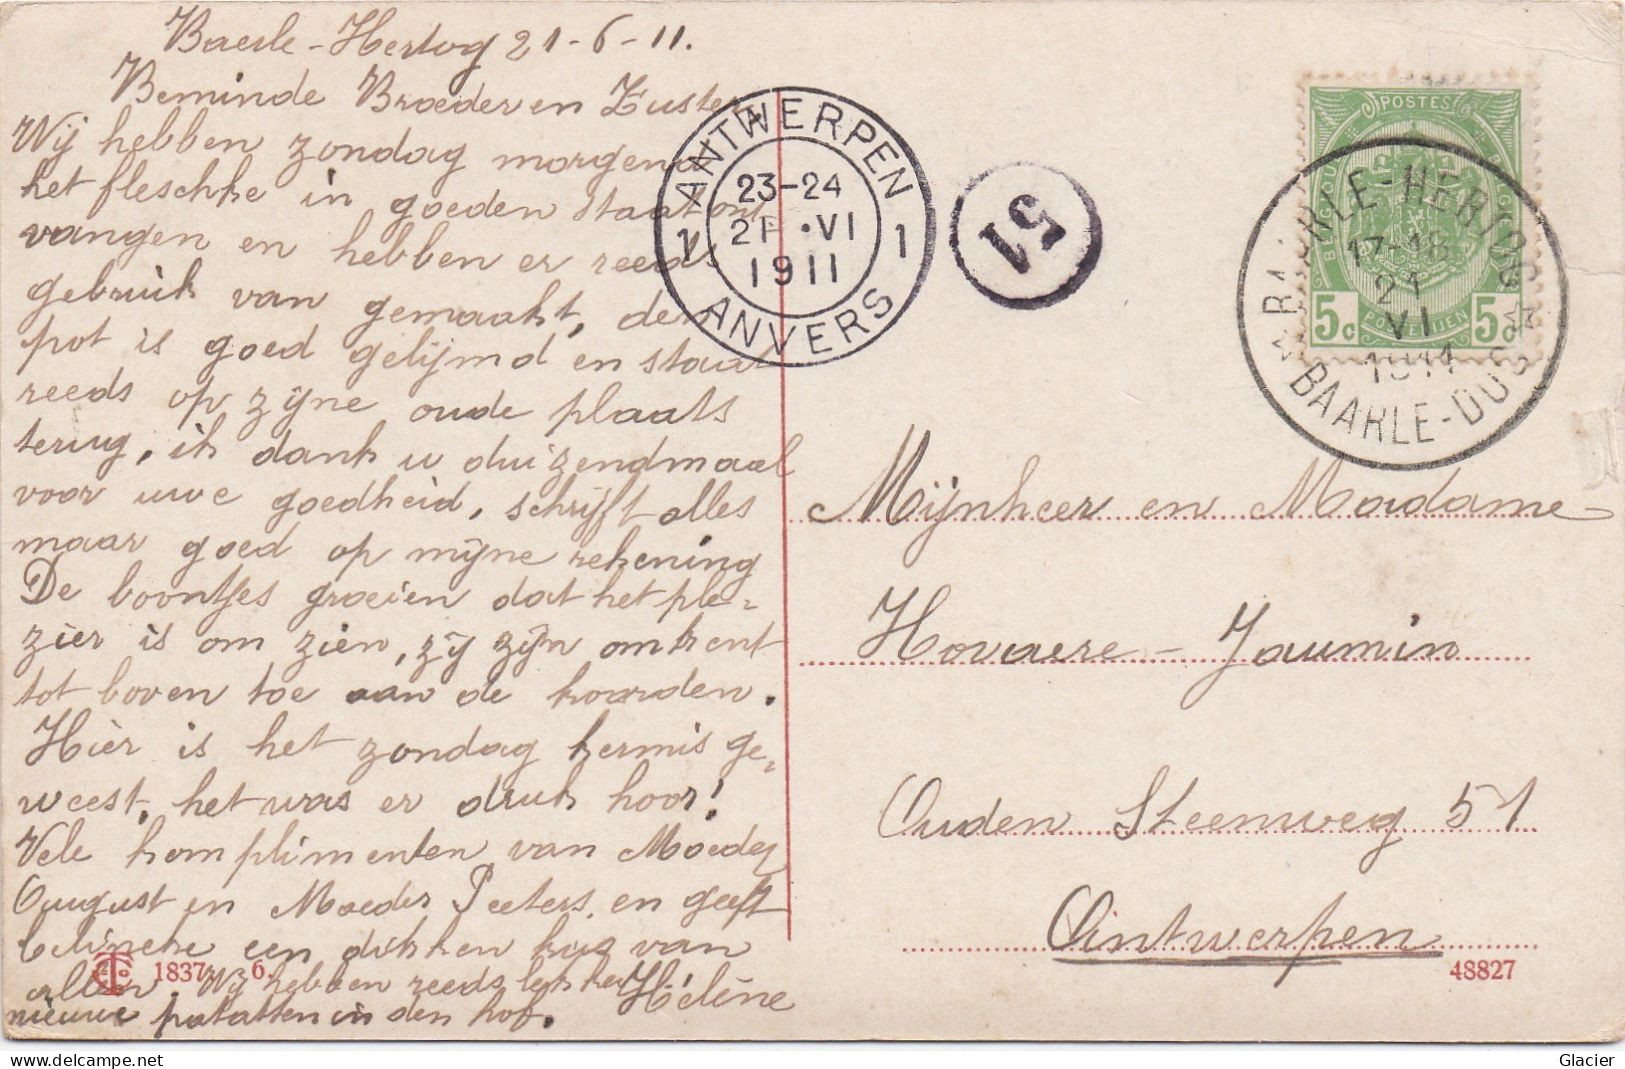 Baerle-Hertog 21-6-11.
Beminde Broeder en Zuster
Wij hebben zondag morgend
het fleschke in goeden staat ont
vangen en hebben er reeds
gebruik van gemaakt, den
pot is goed gelijmd en staat
reeds op zijne oude plaats
terug, ik dank u duizendmaal
voor uwe goedheid, schrijft alles
maar goed op mijne rekening
De boontjes groeien dat het ple-
zier is om zien, zij zijn omtrent
tot boven toe aan de koorden.
Hier is het zondag kermis ge-
weest, het was er druk hoor!
Vele komplimenten van Moeder
August en Moeder Peeters, en geeft
een dikken kus van
allen. Wij hebben reeds lekker
nieuwe patatten in den hof.
Hélène
ANTWERPEN
1 23-24 1
21 · VI
1911
ANVERS
51
POSTES
5c POSTERIJEN 5c
BAARLE-HERTOG
17-18
21
VI
1911
BAARLE-DUC
Mijnheer en Madame
Hovaere - Jaumin
Ouden Steenweg 51
Antwerpen
1837 6.
48827
Glacier